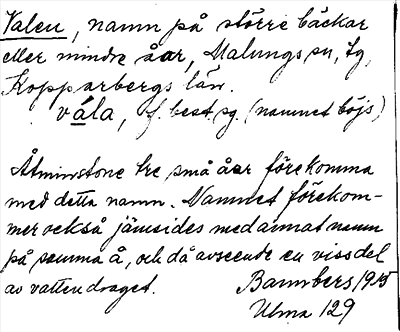 Valen, namn på större bäckar
eller mindre åar, Malungs sn, tg,
Kopparbergs län.
vála, f. best. sg. (namnet böjs)
Åtminstone tre små åar förekomma
med detta namn. Namnet förekom-
mer också jämsides med annat namn
på samma å, och då avseende en viss del
av vattendraget. Bannbers 1915
Ulma 129